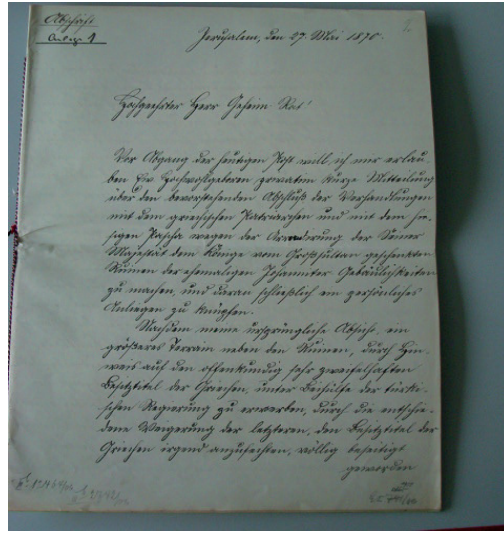 Abschrift
Anlage 1
Jerusalem, den 27. Mai 1870.
Hochgeehrter Herr Geheim Rat!
Vor Abgang der heutigen Post will ich mir erlau-
ben Ew. Hochwohlgeboren privatim kurze Mitteilung
über den bevorstehenden Abschluß der Verhandlungen
mit dem griechischen Patriarchen und mit dem hie-
sigen Pascha wegen der der Seiner
Majestät dem Könige vom Großsultan geschenkten
Ruinen der ehemaligen Johanniter Gebäulichkeiten
zu machen, und daran schließlich ein persönliches
Anliegen zu knüpfen.
Nachdem meine ursprüngliche Absicht, ein
größeres Terrain neben den Ruinen, durch Hin-
weis auf den offenkundig sehr zweifelhaften
Besitztitel der Griechen, unter Beihülfe der türki-
schen Regierung zu erwerben, durch die entschie-
dene Weigerung der letzteren, den Besitztitel der
Griechen irgend anzufechten, völlig beseitigt
geworden